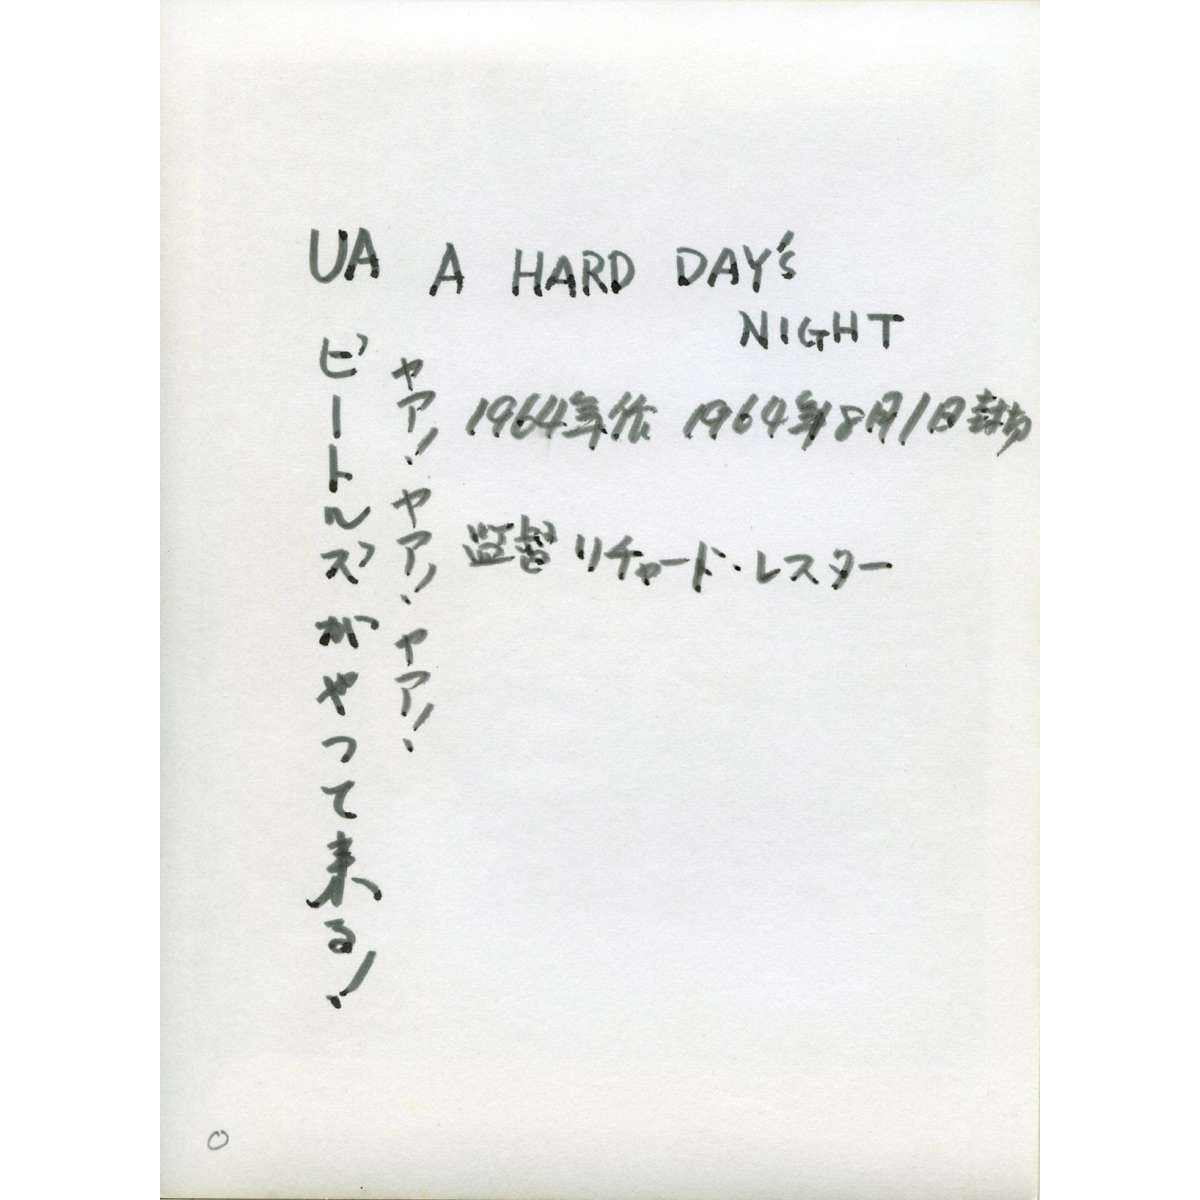 UA A HARD DAY'S
NIGHT
ヤア！ヤア！ヤア！
ビートルズがやって来る！
1964年作 1964年8月1日封切
監督 リチャード・レスター